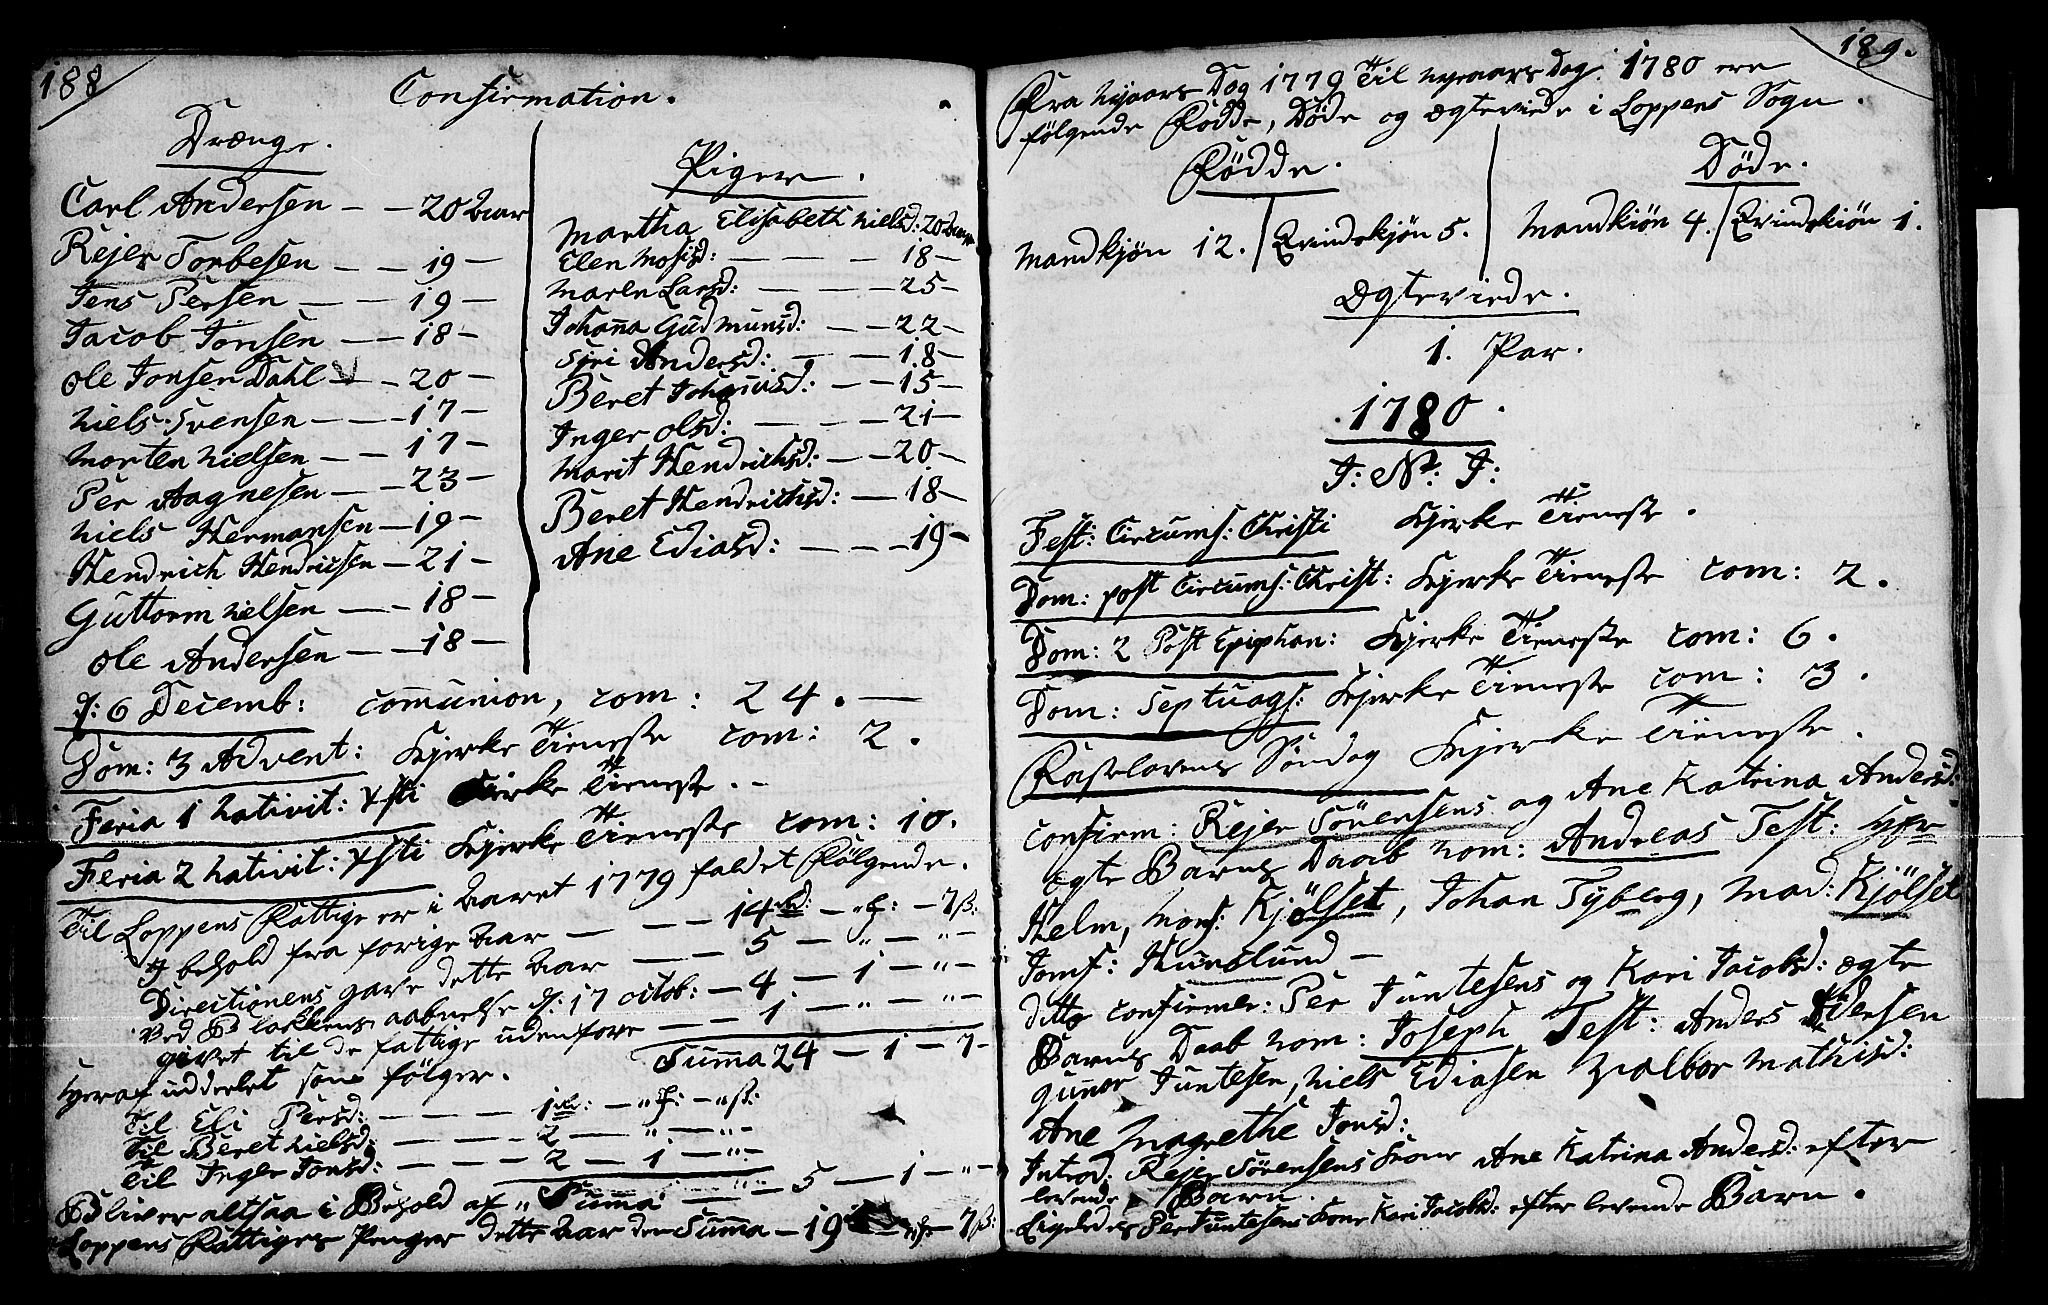 188
Confirmation.
Drænge.
Carl Andersen — — 20 aar
Rejer Torbesen — — 19 —
Jens Persen — — 19 —
Jacob Jonsen — — 18 —
Ole Jonsen Dahl — — 20 —
Niels Svensen — — 17 —
Morten Nielsen — — 17 —
Per Aagnesen — — 23 —
Niels Hermansen — 19 —
Hendrich Hendrichsen — 21 —
Guttorm Nielsen — — 18 —
Ole Andersen — — 18 —
Piger.
Martha Elisabeth Nielsd: 20 aar
Elen Mosisd: — — — 18 —
Maren Larsd: — — — 25 —
Johanna Gudmunsd: — — 22 —
Siri Andersd: — — 18 —
Beret Johannsd: — — 15 —
Inger Olsd: — — — 21 —
Marit Hendrichsd: — — 20 —
Beret Hendrichsd: — 18 —
Ane Ediasd: — — — 19 —
d: 6 Decemb: communion, com: 24. —
Dom: 3 Advent: Kjerke Tieneste com: 2.
Feria 1 Nativit: Xsti Kirke Tieneste. —
Feria 2 Nativit: Xsti Kjerke Tieneste com: 10.
Til Loppens Fattige er i Aaret 1779 faldet Følgende.
I behold fra forige Aar — — — 14 rd: — " — 7 ß:
Directionens gave dette Aar — — 5 — " — " —
Ved Blokkens aabnelse d: 17 octob: — 4 — 1 — " —
givet til de fattige udenfore — — 1 — " — " —
Summa 24 — 1 — 7 —
Heraf uddeelet som følger.
Til Eli Persd: — — — 1 rd: — " — " ß:
Til Beret Nielsd: — — — 2 — " — " —
Til Inger Jonsd: — — — 2 — 1 — " —
Summa — " — 5 — 1 — " —
Bliver altsaa i Behold af
Loppens Fattiges Penger dette Aar den Summa — 19 — — 7 ß:
189.
Fra Nyaars Dag 1779 Til Nyeaars Dag 1780 ere
følgende Fødde, Døde og Ægteviede i Loppens Sogn.
Fødde.
Mandkjøn 12. / Qvindekjøn 5.
Døde.
Mandkiøn 4. / Qvindekiøn 1.
Ægteviede.
1. Par.
.1780.
I: N: J:
Fest: Circums: Christi Kjerke Tieneste.
Dom: post Circums: Christ: Kjerke Tieneste com: 2.
Dom: 2 Post Epiphan: Kjerke Tieneste com: 6.
Dom: Septuags: Kjerke Tieneste com: 3.
Fastelavens Søndag Kjerke Tieneste.
confirm: Rejer Sörensens og Ane Katrina Andersd:
ægte Barns Daab nom: Andreas Test: Hr
Helm, Mons: Kjølset, Johan Tyberg, Mad: Kjølset
Jomf: Hunslund —
ditto confirmer: Per Juntesens og Kari Jacobsd: ægte
Barns Daab nom: Joseph Test: Anders Edersen
Gunnor Juntesen, Niels Ediasen Valbor Mathisd:
Ane Magrethe Jonsd:
Introd. Rejer Sörensens Kone Ane Katrina Andersd: efter
levende Barn.
Ligeledes Per Juntesens Kone Kari Jacobsd: efter levende Barn.